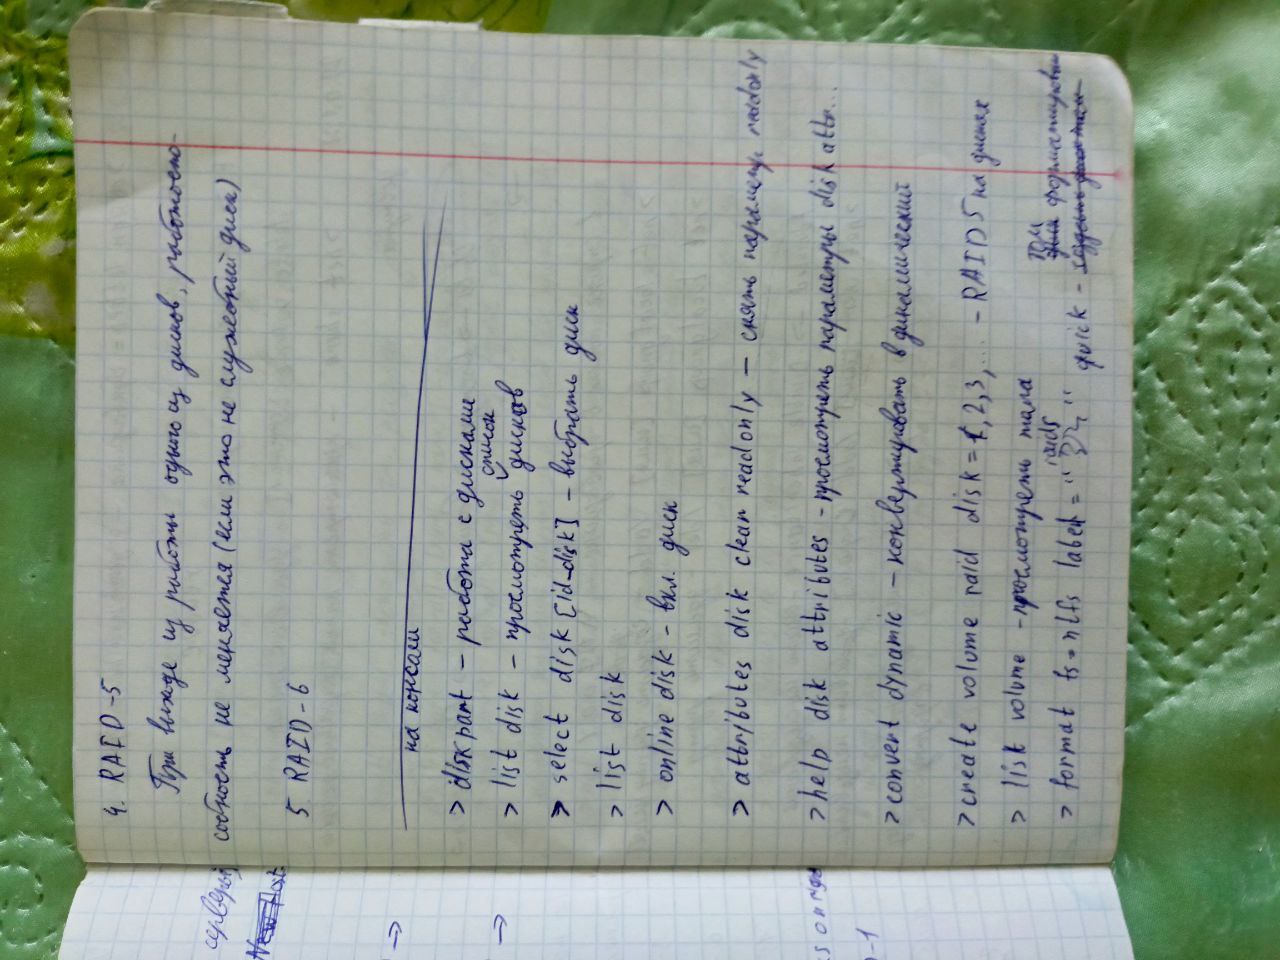 4. RAID-5
При выходе из работы одного из дисков, работоспо-
собность не меняется (если это не служебный диск)
5 RAID-6
на консоли
> diskpart - работа с дисками
> list disk - просмотреть список дисков
> select disk [id_disk] - выбрать диск
> list disk
> online disk - вкл. диск
> attributes disk clear readonly - снять параметр readonly
> help disk attributes - просмотреть параметры disk attr...
> convert dynamic - конвертировать в динамический
> create volume raid disk = 1,2,3,... - RAID5 на дисках
> list volume - просмотреть тома
> format fs=ntfs label = "raid5" quick - том
серверы
New Host
→
→
-1